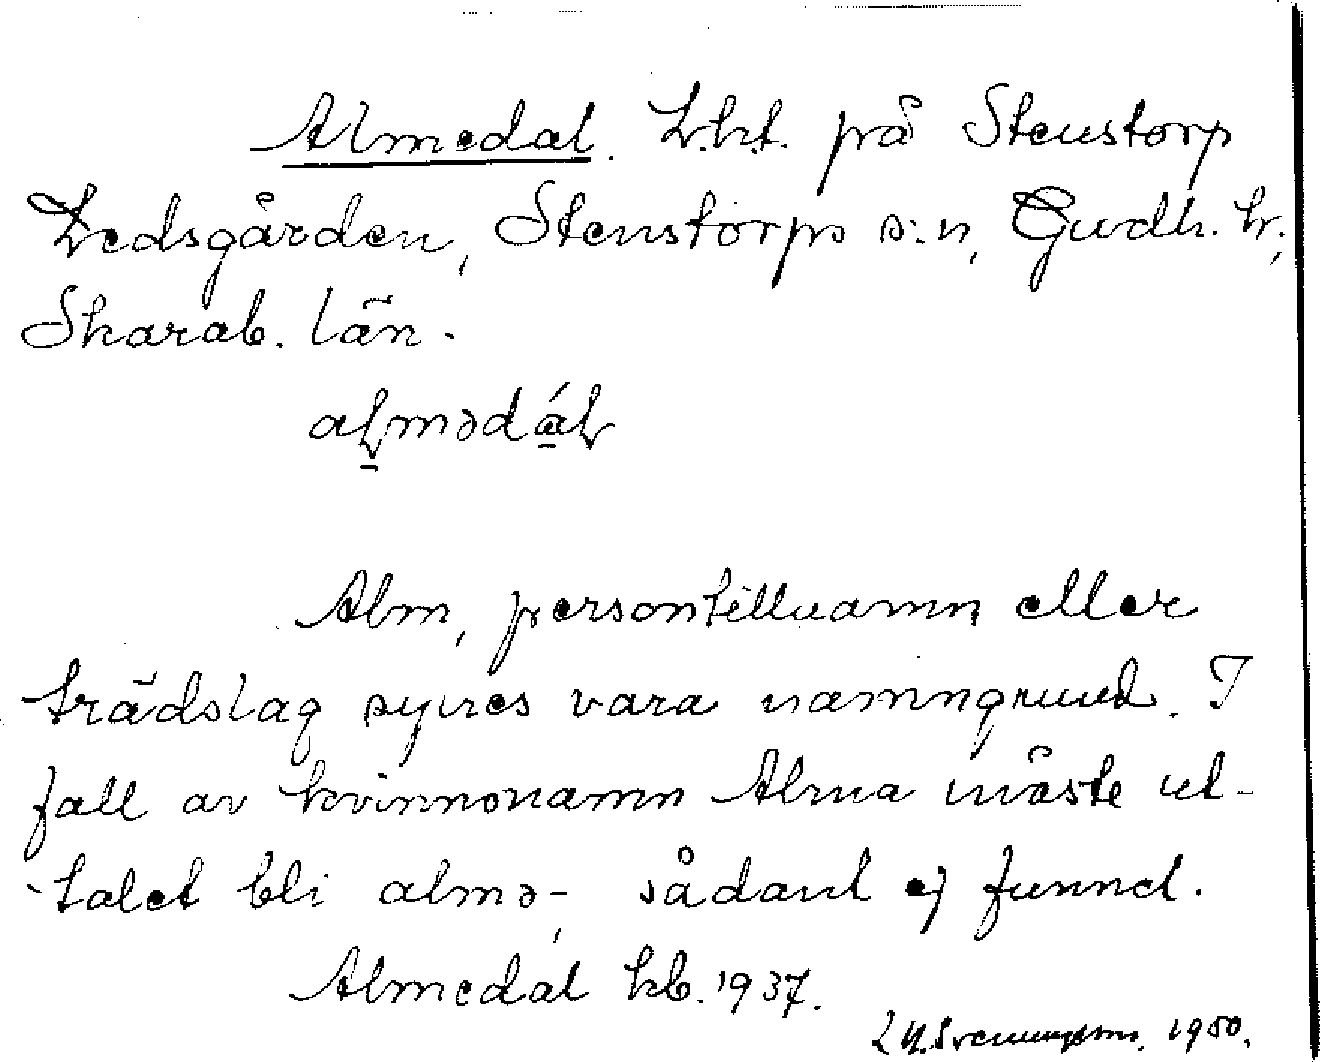 Almedal. Lht. på Stenstorp
Ledsgården, Stenstorps s:n, Gudh. hr,
Skarab. län.
aḷmədáɫ
Alm, persontillnamn eller
trädslag synes vara namngrund. I
fall av kvinnonamn Alma måste ut-
talet bli almə-, sådant ej funnet.
Almedal kb. 1937.
1950.